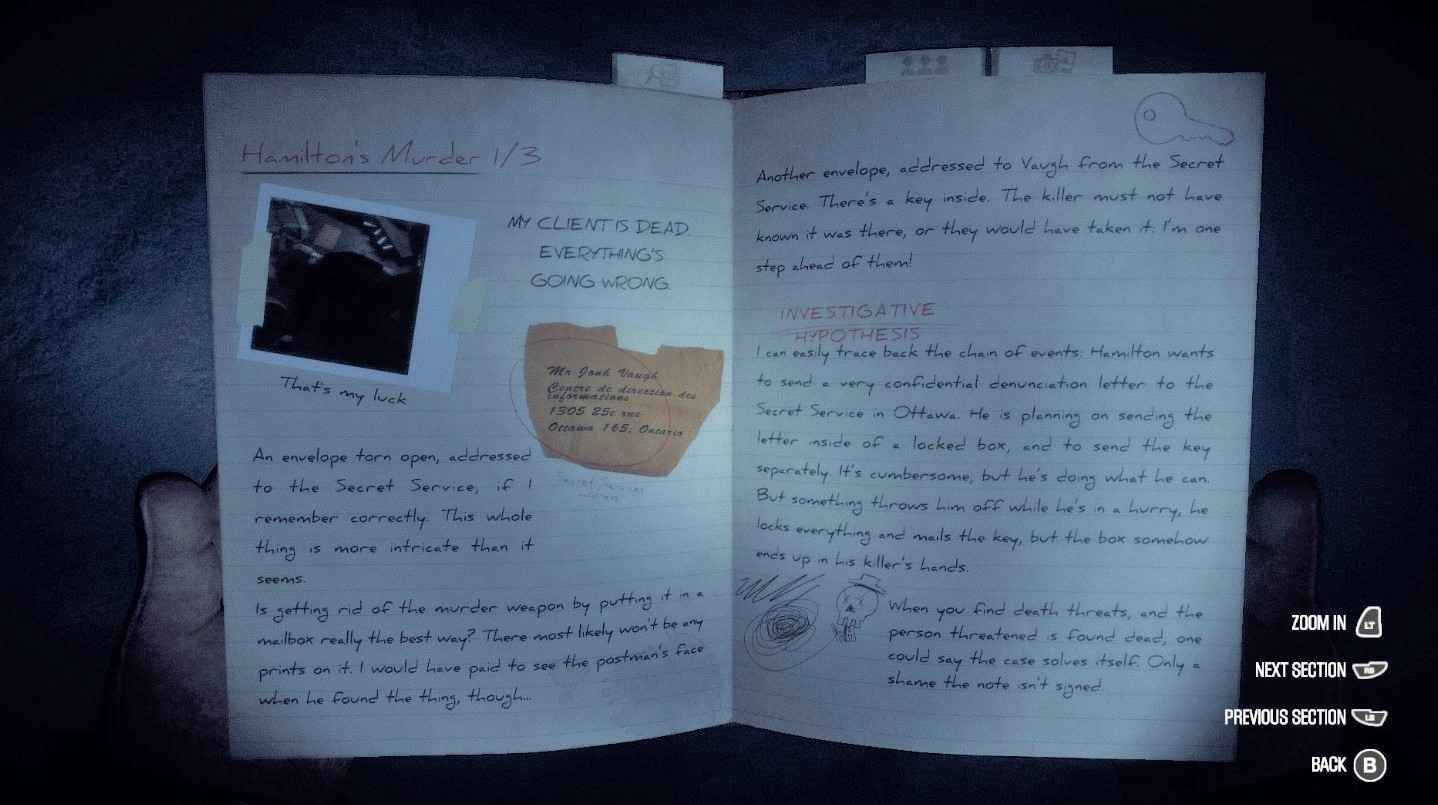 Hamilton's Murder 1/3
MY CLIENT IS DEAD
EVERYTHING'S
GOING WRONG
That's my luck
Mr Jonh Vaugh
Centre de direction des
informations
1305 25e rue
Ottawa 165, Ontario
An envelope torn open, addressed
to the Secret Service, if I
remember correctly. This whole
thing is more intricate than it
seems.
Is getting rid of the murder weapon by putting it in a
mailbox really the best way? There most likely won't be any
prints on it. I would have paid to see the postman's face
when he found the thing, though...
Another envelope, addressed to Vaugh from the Secret
Service. There's a key inside. The killer must not have
known it was there, or they would have taken it. I'm one
step ahead of them!
INVESTIGATIVE
HYPOTHESIS
I can easily trace back the chain of events: Hamilton wants
to send a very confidential denunciation letter to the
Secret Service in Ottawa. He is planning on sending the
letter inside of a locked box, and to send the key
separately. It's cumbersome, but he's doing what he can.
But something throws him off while he's in a hurry, he
locks everything and mails the key, but the box somehow
ends up in his killer's hands.
When you find death threats, and the
person threatened is found dead, one
could say the case solves itself. Only a
shame the note isn't signed.
ZOOM IN LT
NEXT SECTION RB
PREVIOUS SECTION LB
BACK B